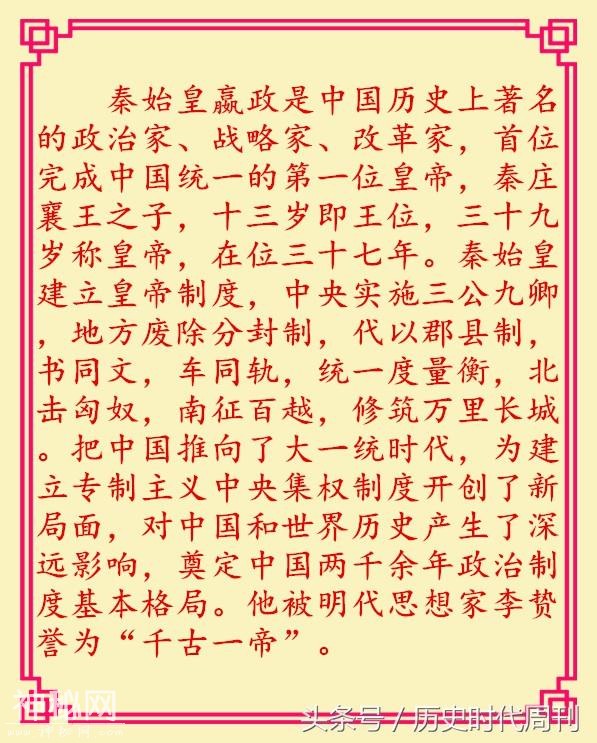 秦始皇嬴政是中国历史上著名
的政治家、战略家、改革家，首位
完成中国统一的第一位皇帝，秦庄
襄王之子，十三岁即王位，三十九
岁称皇帝，在位三十七年。秦始皇
建立皇帝制度，中央实施三公九卿
，地方废除分封制，代以郡县制，
书同文，车同轨，统一度量衡，北
击匈奴，南征百越，修筑万里长城
。把中国推向了大一统时代，为建
立专制主义中央集权制度开创了新
局面，对中国和世界历史产生了深
远影响，奠定中国两千余年政治制
度基本格局。他被明代思想家李贽
誉为“千古一帝”。
神秘网
头条号／历史时代周刊